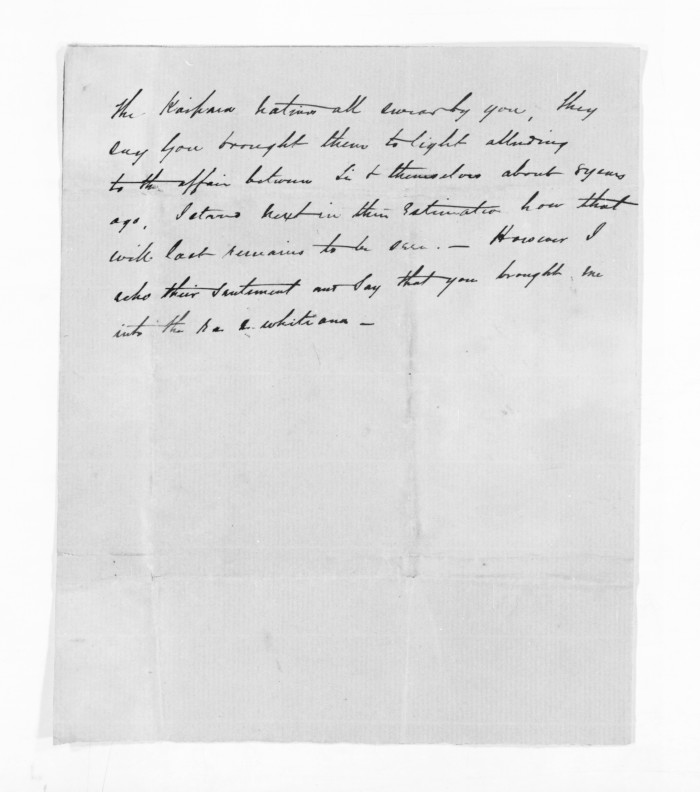 The Kaipara natives all swear by you, they
say you brought them to light alluding
to the affair between & themselves about 8 years
ago, I stand next in their Estimation how that
will last remains to be seen. — However I
echo their sentiment and say that you brought me
into the whitiana —